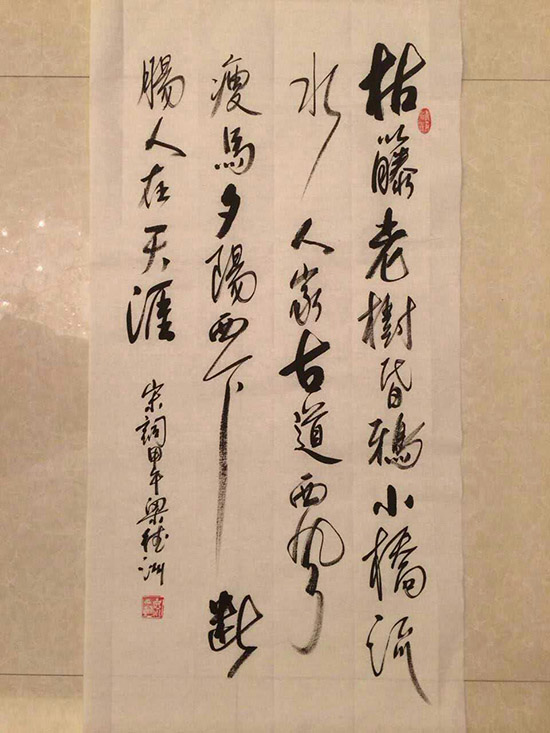 枯籐老樹昏鴉小橋流
水人家古道西風
瘦馬夕陽西下斷
腸人在天涯
宋詞甲午梁